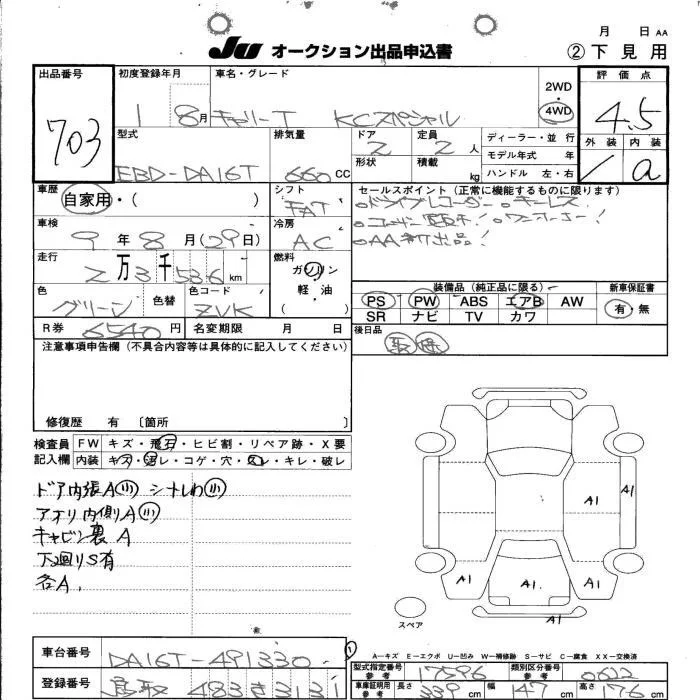 月 日 AA
JU オークション出品申込書 ②下見用
出品番号 初度登録年月 車名・グレード 評価点
703 1 8月 キャリーT KCスペシャル 2WD 4WD 4.5
型式 排気量 ドア 定員 ディーラー・並行 外装 内装
EBD-DA16T 660cc 2 2人 モデル年式 年 1 a
形状 積載 kg ハンドル 左・右
車歴 シフト セールスポイント(正常に機能するものに限ります)
自家用・( ) FAT ○ドライブレコーダー ○キーレス
車検 冷房 ○ユーザー買取車! ○ワンオーナー!
9年8月(29日) AC ○AA初出品!
走行 燃料
2万3千536km ガソリン 軽・油 ( )
装備品(純正品に限る) 新車保証書
色 色替 色コード PS PW ABS エアB AW 有・無
グリーン ZVK SR ナビ TV カワ
R券 6540円 名変期限 月 日 後日品
取 保
注意事項申告欄(不具合内容等は具体的に記入してください)
修復歴 有〔箇所 〕
検査員記入欄 FW キズ・飛石・ヒビ割・リペア跡・X要
内装 キズ・汚レ・コゲ・穴・スレ・キレ・破レ
ドア内張A小 シートしわ小
アオリ内側A小
キャビン裏A
下廻りS有
各A.
A1 A1
A1 A1. A1
A1
スペア
A―キズ E―エクボ U―凹み W―補修跡 S―サビ C―腐食 XX―交換済
車台番号 DA16T-491330 型式指定番号 参考 17596 類別区分番号 参考 0622
登録番号 鳥取 483き3131 車庫証明用 参考 長さ 339cm 幅 147cm 高さ 176cm